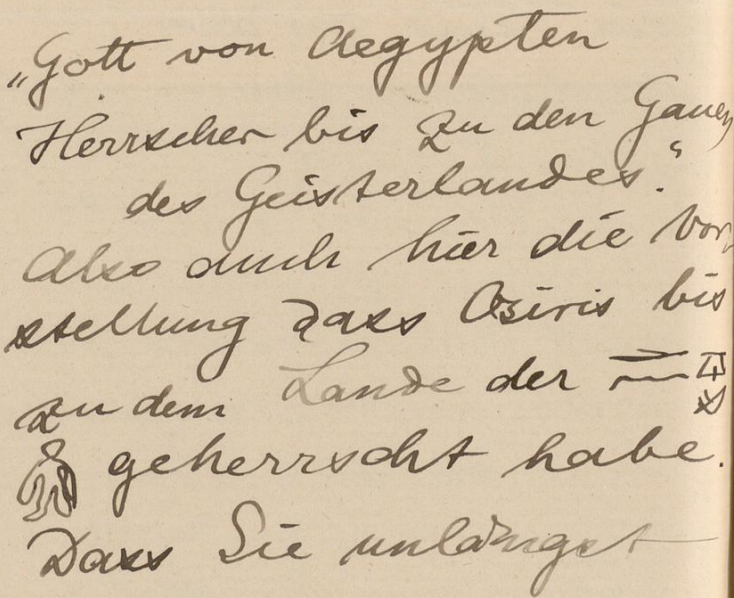 „Gott von Aegypten
Herrscher bis zu den Gauen
des Geisterlandes.“
Also auch hier die Vor-
stellung dass Osiris bis
zu dem Lande der
geherrscht habe.
Dass Sie unlängst